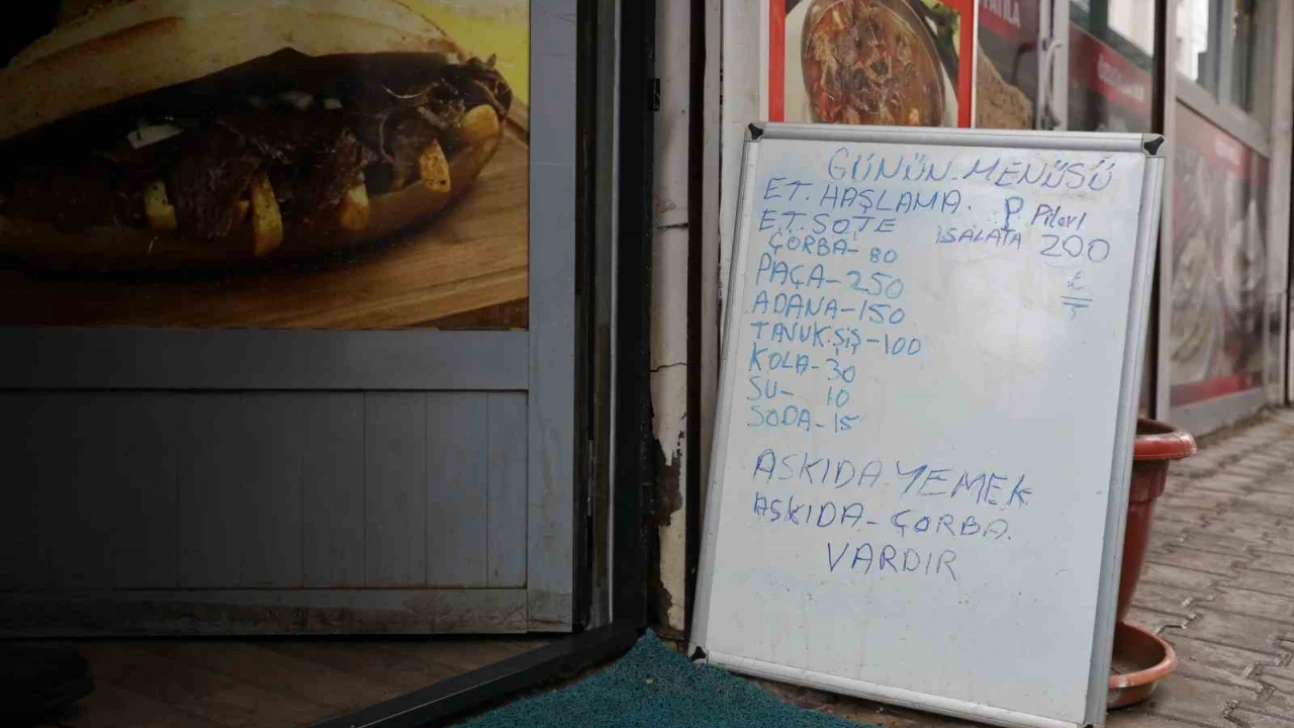 GÜNÜN-MENÜSÜ
ET. HAŞLAMA. Pilavl
ET. SOTE SALATA 200
ÇORBA- 80 ₺
PAÇA-250
ADANA-150
TAVUK.ŞİŞ-100
KOLA-30
SU- 10
SODA-15
ASKIDA-YEMEK
ASKIDA-ÇORBA.
VARDIR